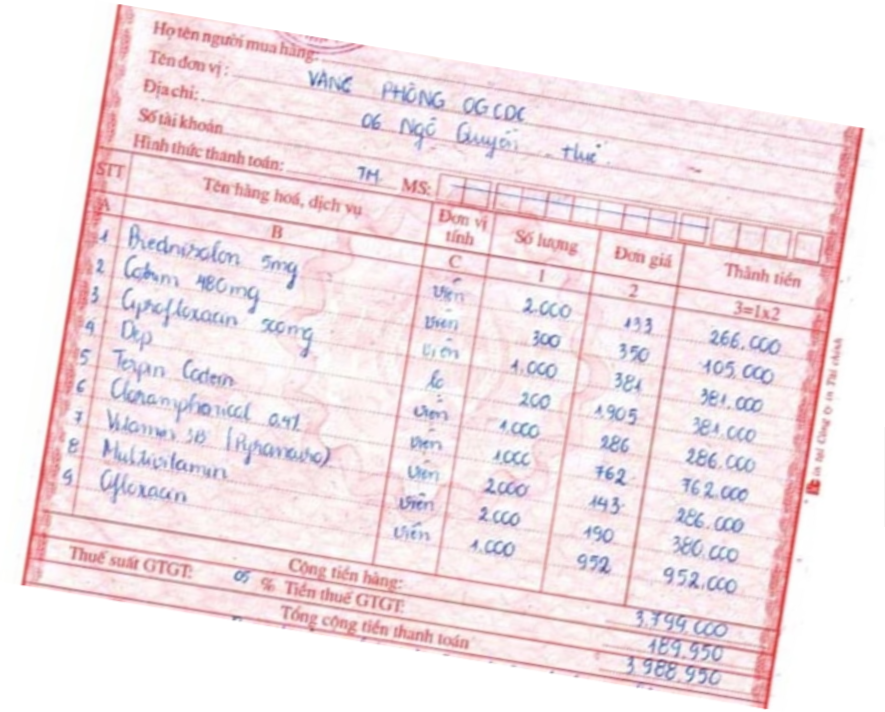 Họ tên người mua hàng:
Tên đơn vị: VĂNG PHÒNG OGCDC
Địa chỉ: 06 Ngô Quyền - Huế.
Số tài khoản
Hình thức thanh toán: TM MS:
STT Tên hàng hoá, dịch vụ Đơn vị tính Số lượng Đơn giá Thành tiền
A B C 1 2 3=1x2
1 Prednisolon 5mg viên 2.000 133 266.000
2 Cotrim 480mg viên 300 350 105.000
3 Ciprofloxacin 500mg viên 1.000 381 381.000
4 Dep lo 200 1.905 381.000
5 Terpin Codein viên 1.000 286 286.000
6 Cloramphenical 0,4% viên 1.000 762 762.000
7 Vitamin 3B viên 2.000 143 286.000
8 Multivitamin viên 2.000 190 380.000
9 Ofloxacin viên 1.000 952 952.000
Cộng tiền hàng: 3.799.000
Thuế suất GTGT: 05 % Tiền thuế GTGT: 189.950
Tổng cộng tiền thanh toán 3.988.950
in tại Công ty in Tài chính